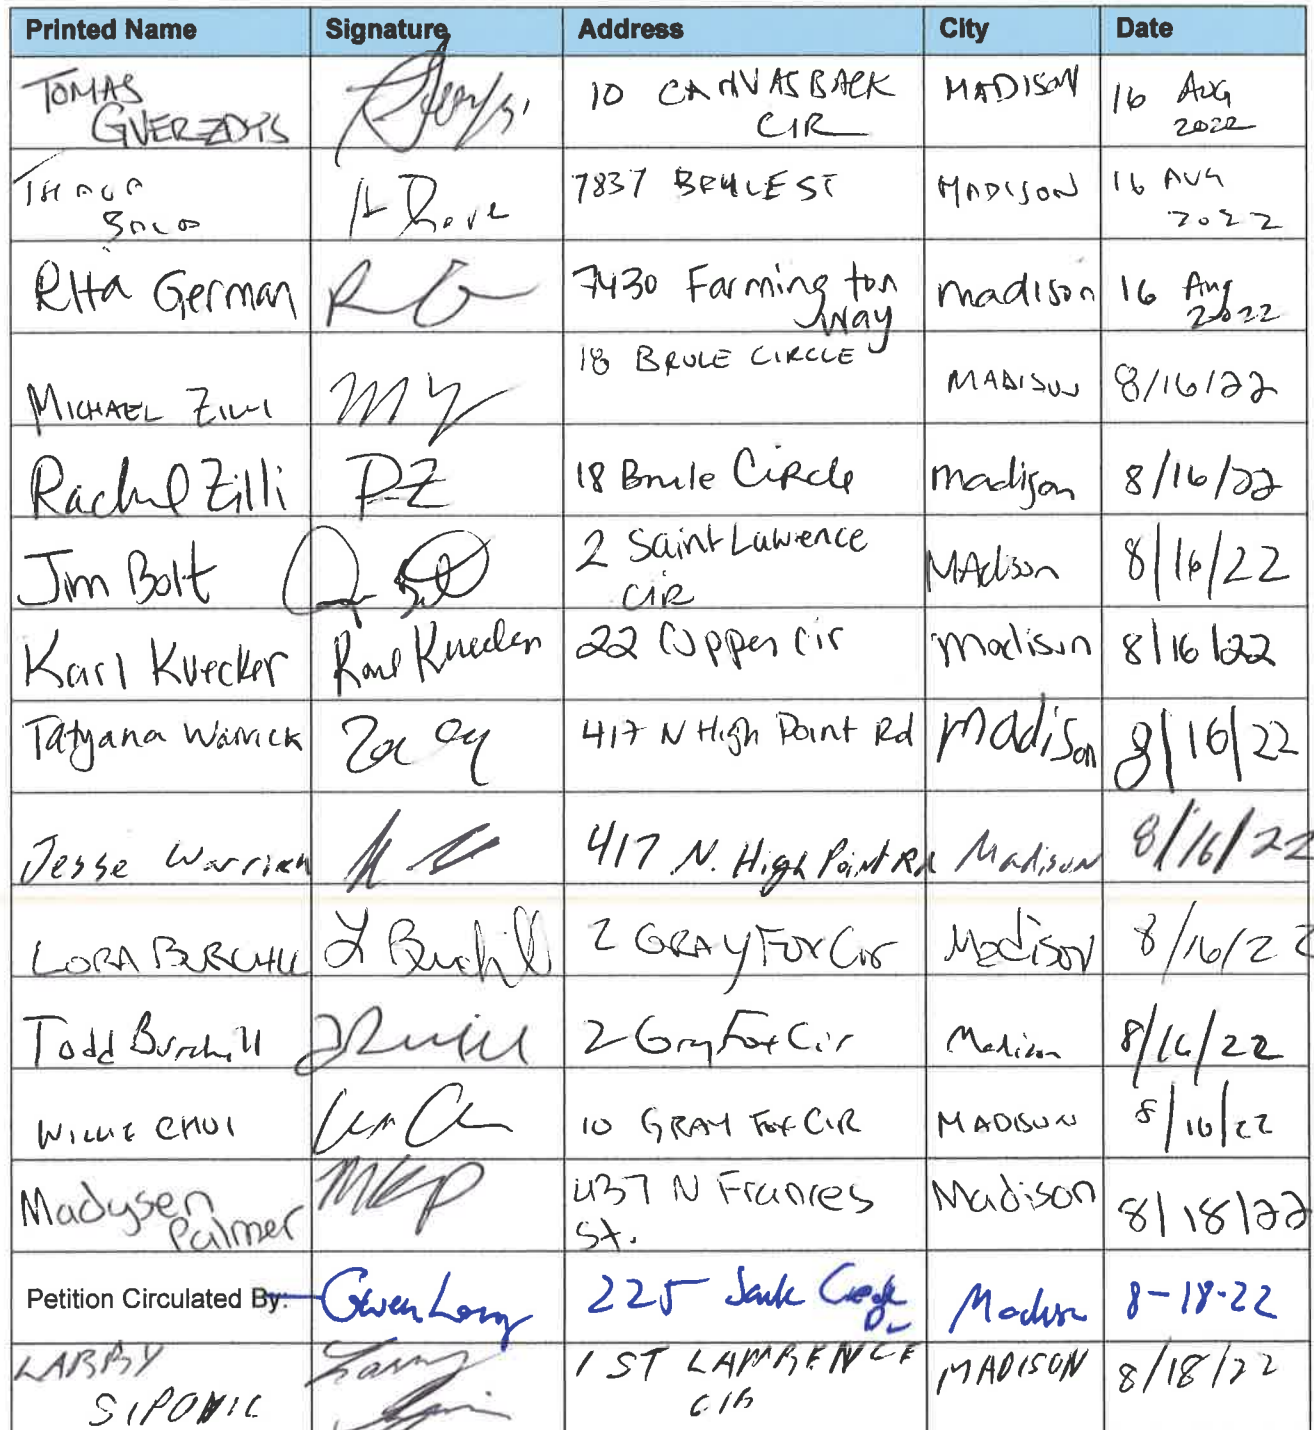 Printed Name Signature Address City Date
TOMAS 10 CANVASBACK MADISON 16 AUG
GVEREZDYS CIR 2022
7837 BRULE ST MADISON 16 AUG
2022
Rita German RG 7430 Farmington madison 16 Aug
Way 2022
18 BRULE CIRCLE
MICHAEL ZILLI MZ MADISON 8/16/22
Rachel Zilli RZ 18 Brule Circle madison 8/16/22
Jim Bolt 2 Saint Lawrence MAdison 8/16/22
CIR
Karl Kuecker Karl Kuecker 22 Copper Cir Madison 8/16/22
Tatyana Warrick 417 N High Point Rd Madison 8/16/22
Jesse Warrick 417 N. High Point Rd Madison 8/16/22
LORA BURCHILL L Burchill 2 GRAY FOX Cir Madison 8/16/22
Todd Burchill 2 Gray Fox Cir Madison 8/16/22
WILLIE CHOI 10 GRAY FOX CIR MADISON 8/16/22
Madysen MKP 437 N Frances Madison 8/18/22
Palmer St.
Petition Circulated By: Gwen Long 225 Madison 8-18-22
LARRY Larry 1 ST LAWRENCE MADISON 8/18/22
CIR